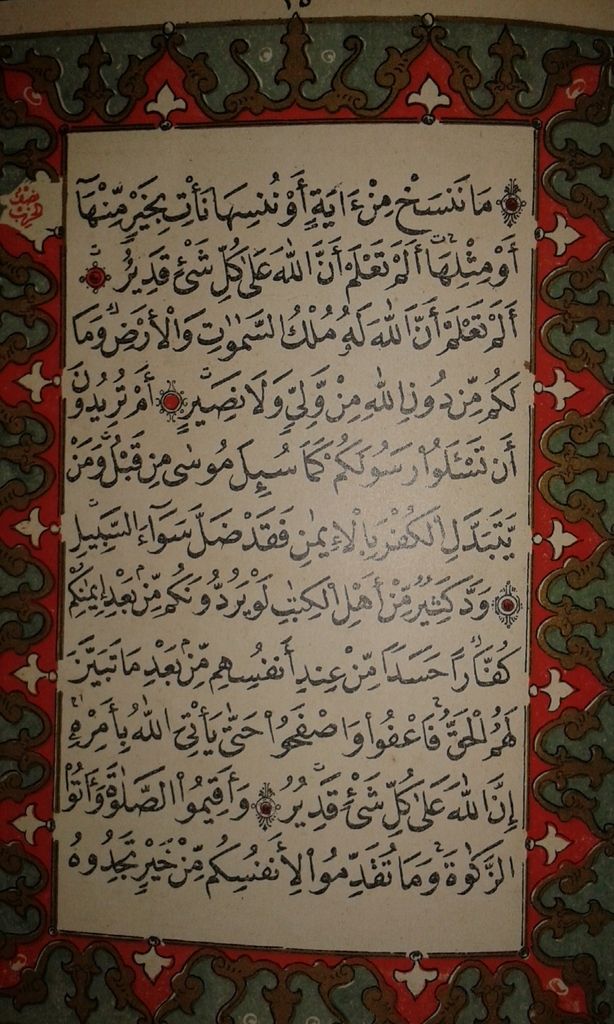 ١٥
مَا نَنسَخْ مِنْ ءَايَةٍ أَوْ نُنسِهَا نَأْتِ بِخَيْرٍ مِّنْهَآ
أَوْ مِثْلِهَآ أَلَمْ تَعْلَمْ أَنَّ اللّٰهَ عَلَىٰ كُلِّ شَيْءٍ قَدِيرٌ
أَلَمْ تَعْلَمْ أَنَّ اللّٰهَ لَهُۥ مُلْكُ السَّمٰوٰتِ وَالْأَرْضِ وَمَا
لَكُم مِّن دُونِ اللّٰهِ مِنْ وَّلِيٍّ وَلَا نَصِيرٍ أَمْ تُرِيدُونَ
أَن تَسْـَٔلُوا۟ رَسُولَكُمْ كَمَا سُئِلَ مُوسَىٰ مِن قَبْلُ وَمَنْ
يَّتَبَدَّلِ الْكُفْرَ بِالْإِيمٰنِ فَقَدْ ضَلَّ سَوَآءَ السَّبِيلِ
وَدَّ كَثِيرٌ مِّنْ أَهْلِ الْكِتٰبِ لَوْ يَرُدُّونَكُم مِّنۢ بَعْدِ إِيمٰنِكُمْ
كُفَّارًا حَسَدًا مِّنْ عِندِ أَنفُسِهِم مِّنۢ بَعْدِ مَا تَبَيَّنَ
لَهُمُ الْحَقُّ فَاعْفُوا۟ وَاصْفَحُوا۟ حَتَّىٰ يَأْتِيَ اللّٰهُ بِأَمْرِهِۦٓ
إِنَّ اللّٰهَ عَلَىٰ كُلِّ شَيْءٍ قَدِيرٌ وَأَقِيمُوا۟ الصَّلٰوةَ وَءَاتُوا۟
الزَّكٰوةَ وَمَا تُقَدِّمُوا۟ لِأَنفُسِكُم مِّنْ خَيْرٍ تَجِدُوهُ